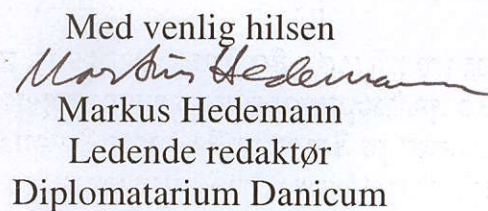 Med venlig hilsen
Markus Hedemann
Markus Hedemann
Ledende redaktør
Diplomatarium Danicum